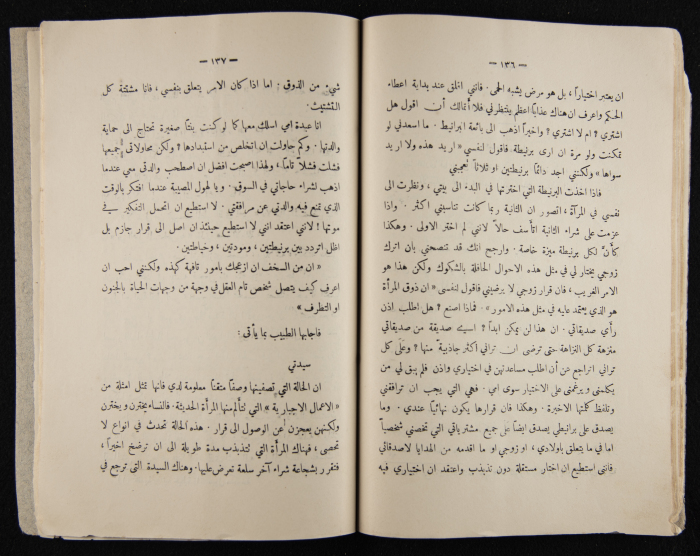 — ١٣٦ —
ان يعتبر اختياراً، بل هو مرض يشبه الحمى. فانني اقلق عند بداية اعطاء
الحكم واعرف ان هناك عذاباً اعظم ينتظرني فلا أتمالك أن اقول هل
اشتري؟ ام لا اشتري؟ واخيراً اذهب الى بائعة البرانيط. ما اسعدني لو
تمكنت ولو مرة ان ارى برنيطة فاقول لنفسي «اريد هذه ولا اريد
سواها» ولكنني اجد دائماً برنيطتين او ثلاثاً تعجبني
فاذا اخذت البرنيطة التي اخترتها في البدء الى بيتي، ونظرت الى
نفسي في المرآة، اتصور ان الثانية ربما كانت تناسبني اكثر. واذا
عزمت على شراء الثانية اتأسف حالاً لانني لم اختر الاولى. وهكذا
كأنَّ لكل برنيطة ميزة خاصة. وارجح انك قد تنصحني بأن اترك
زوجي يختار لي في مثل هذه الاحوال الحافلة بالشكوك ولكن هذا هو
الامر الغريب، فان قرار زوجي لا يرضيني فاقول لنفسي «ان ذوق المرأة
هو الذي يعتمد عليه في مثل هذه الامور». فماذا اصنع؟ هل اطلب اذن
رأي صديقاتي. ان هذا لن يمكن ابداً؟ اسيے صديقة من صديقاتي
منزهة كل النزاهة حتى ترضى ان تراني أكثر جاذبيةً منها؟ وعلى كل
تراني اتراجع عن أن اطلب مساعدتهن في اختياري واذن فلم يبق لي من
يكلمني ويرغمني على الاختيار سوى امي. فهي التي يجب ان ترافقني
وتلفظ كلمتها الاخيرة. وهكذا فان قرارها يكون نهائياً عندي. وما
يصدق على برانيطي يصدق ايضاً على جميع مشترياتي التي تخصني شخصياً
اما في ما يتعلق باولادي، او زوجي او ما اقدمه من الهدايا لاصدقائي
فانني استطيع ان اختار مستقلة دون تذبذب واعتقد ان اختياري فيه
— ١٣٧ —
شيءٌ من الذوق: اما اذا كان الامر يتعلق بنفسي، فانا مشتتة كل
التشتيت.
انا عبدة امي اسلك معها كما لو كنت بنتاً صغيرة تحتاج الى حماية
والدتها. وكم حاولت ان اتخلص من استبدادها؟ ولكن محاولاتي جميعها
فشلت فشلاً تاماً، ولهذا اصبحت افضل ان اصطحب والدتي معي عندما
اذهب لشراء حاجاتي في السوق. ويا لهول المصيبة عندما افتكر بالوقت
الذي تمتنع فيه والدتي عن مرافقتي. لا استطيع ان اتحمل التفكير في
موتها! لانني اعتقد انني لا استطيع حينئذ ان اصل الى قرار جازم بل
اظل اتردد بين برنيطتين، ومودتين، وخياطتين.
«ان من السخف ان ازعجك بامور تافهة كهذه ولكنني احب ان
اعرف كيف يتصل شخص تام العقل في وجهة من وجهات الحياة بالجنون
او التطرف»
فاجابها الطبيب بما يأتي:
سيدتي
ان الحالة التي تصفينها وصفاً متقناً معلومة لدي فانها تمثل امثلة من
«الاعمال الاجبارية» التي تتألم منها المرأة الحديثة. فالنساء يخترن ويخترن
ولكنهن يعجزن عن الوصول الى قرار. هذه الحالة تحدث في انواع لا
تحصى، فهناك المرأة التي تتذبذب مدة طويلة الى ان ترضخ اخيراً،
فتقرر بشجاعة شراء آخر سلعة تعرض عليها. وهناك السيدة التي ترجع في